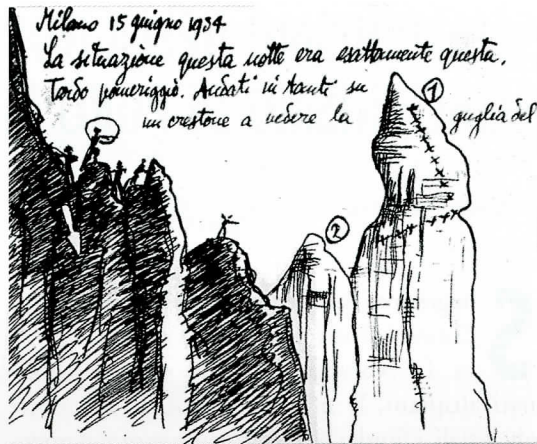 Milano 15 giugno 1934
La situazione questa notte era esattamente questa.
Tardo pomeriggio. Andati in tanti su
un crestone a vedere la guglia del
1
2